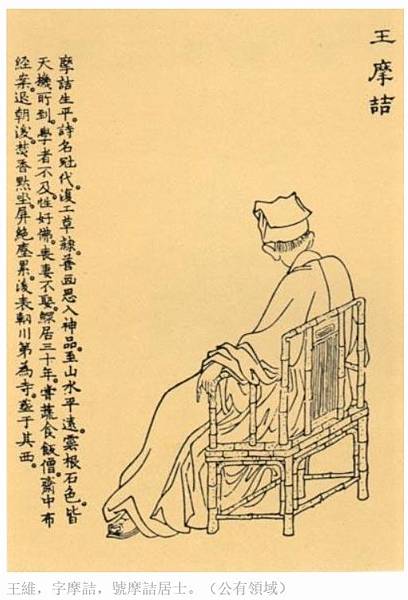 王摩詰
摩詰生平。詩名冠代。復工草隸。善画思入神品。至山水平遠。雲根石色。皆
天機所到。學者不及。性好佛。喪妻不娶。鰥居三十年。常蔬食飯僧。齋中布
経案。退朝後。焚香點坐。屏絶塵累。後表輞川第為寺。葬于其西。
王維，字摩詰，號摩詰居士。（公有領域）